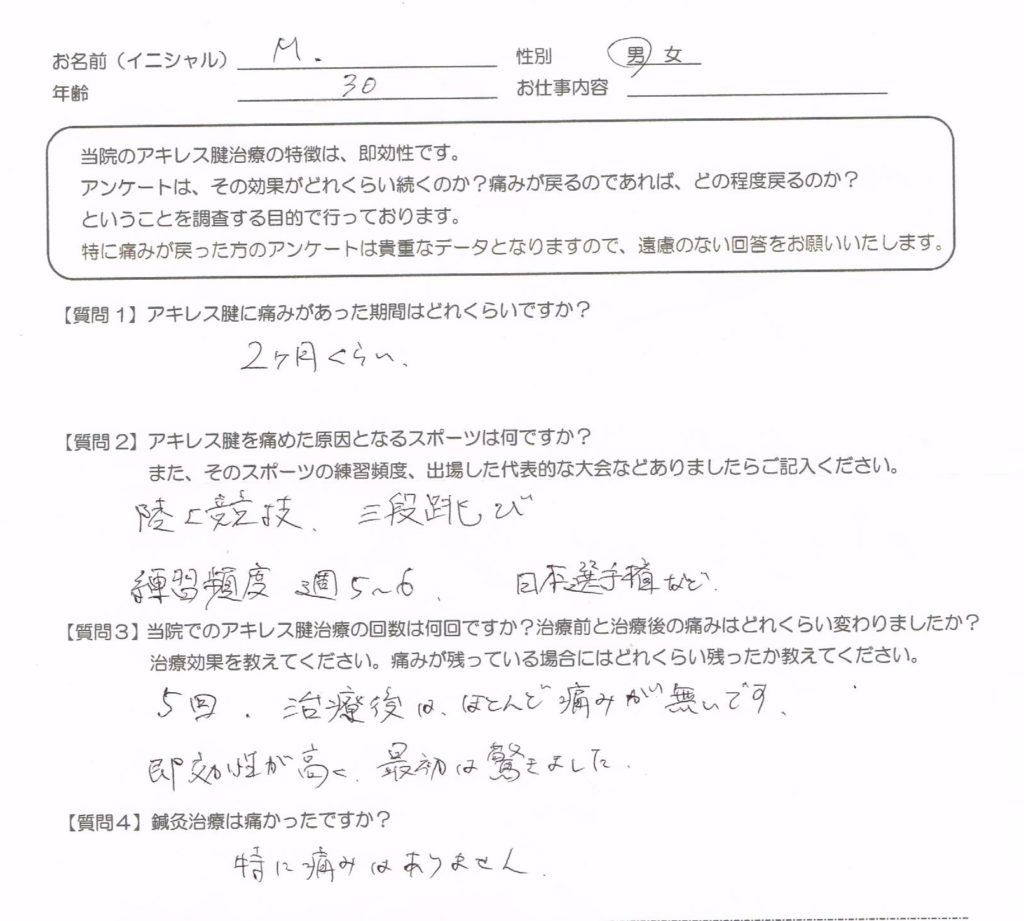 お名前（イニシャル） M.
性別 男 女
年齢 30
お仕事内容
当院のアキレス腱治療の特徴は、即効性です。
アンケートは、その効果がどれくらい続くのか？痛みが戻るのであれば、どの程度戻るのか？
ということを調査する目的で行っております。
特に痛みが戻った方のアンケートは貴重なデータとなりますので、遠慮のない回答をお願いいたします。
【質問1】アキレス腱に痛みがあった期間はどれくらいですか？
2ヶ月くらい、
【質問2】アキレス腱を痛めた原因となるスポーツは何ですか？
また、そのスポーツの練習頻度、出場した代表的な大会などありましたらご記入ください。
陸上競技、三段跳び
練習頻度 週5～6、 日本選手権など、
【質問3】当院でのアキレス腱治療の回数は何回ですか？治療前と治療後の痛みはどれくらい変わりましたか？
治療効果を教えてください。痛みが残っている場合にはどれくらい残ったか教えてください。
5回、治療後は、ほとんど痛みが無いです、
即効性が高く、最初は驚きました、
【質問4】鍼灸治療は痛かったですか？
特に痛みはありません、